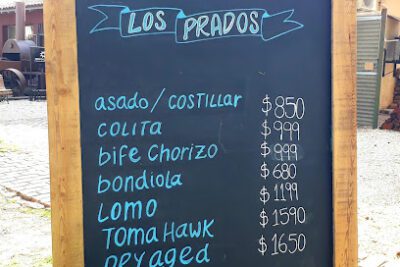 LOS PRADOS
asado/COSTILLAR $850
COLITA $999
bife Chorizo $999
bondiola $680
LOMO $1199
TOMAHAWK $1590
DRY aged $1650